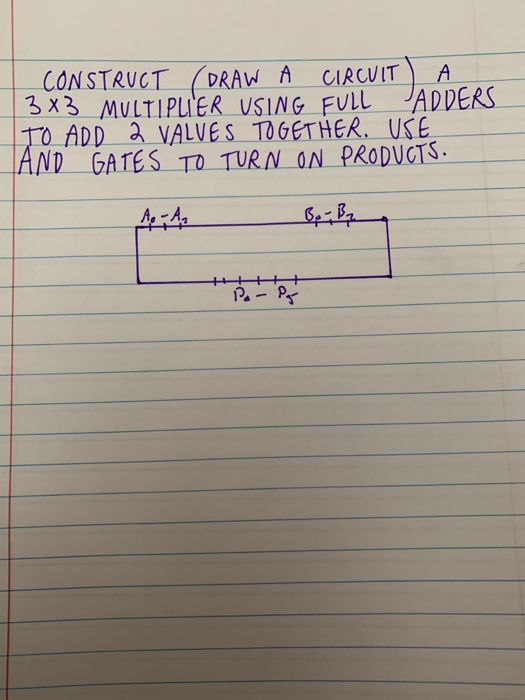 CONSTRUCT (DRAW A CIRCUIT) A
3X3 MULTIPLIER USING FULL ADDERS
TO ADD 2 VALUES TOGETHER. USE
AND GATES TO TURN ON PRODUCTS.
A₀-A₂ B₀-B₂
P₀-P₅